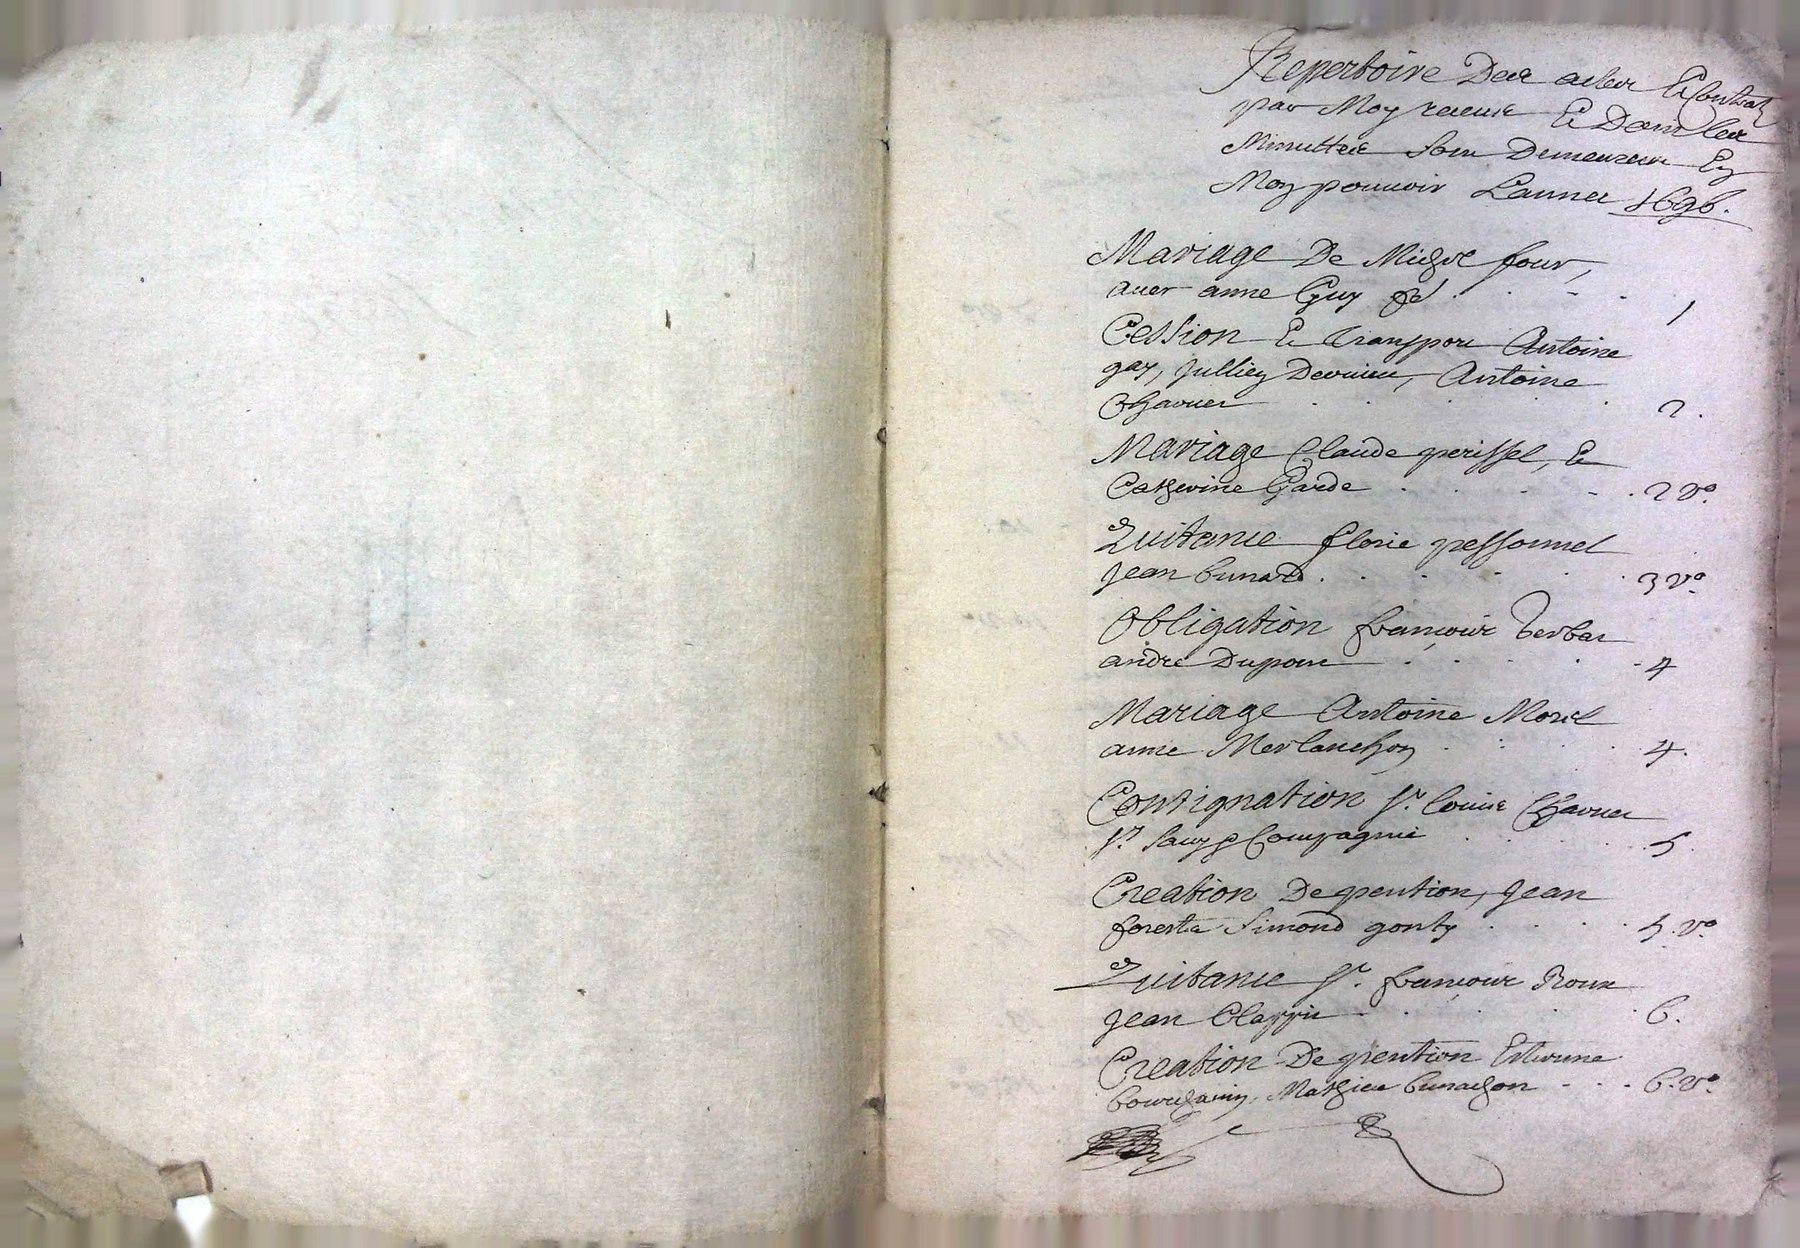 Repertoire Des actes Et Contrats
par Moy receus Et Dont les
Minuttes sont Demeurees En
Mon pouvoir L'annee 1696.
Mariage De Michel four,
avec anne Guy fo 1
Cession Et transport Antoine
gay, Jullien Antoine
Chavner 2.
Mariage Claude perissel, Et
Catherine Garde 2 vo.
Quitance florie pessonnel
Jean bunard 3 vo.
Obligation françois
andré Dupont 4
Mariage Antoine Morel
anne Merlanchon 4.
Consignation Sr. Louis Chavner
Sr. Compagnie 5
Creation De pention, Jean
forestz Simond gonty 5. vo
Quitance Sr. françois Roux
Jean Clappis 6.
Creation De pention Estienne
Mathieu bunachon 6. vo